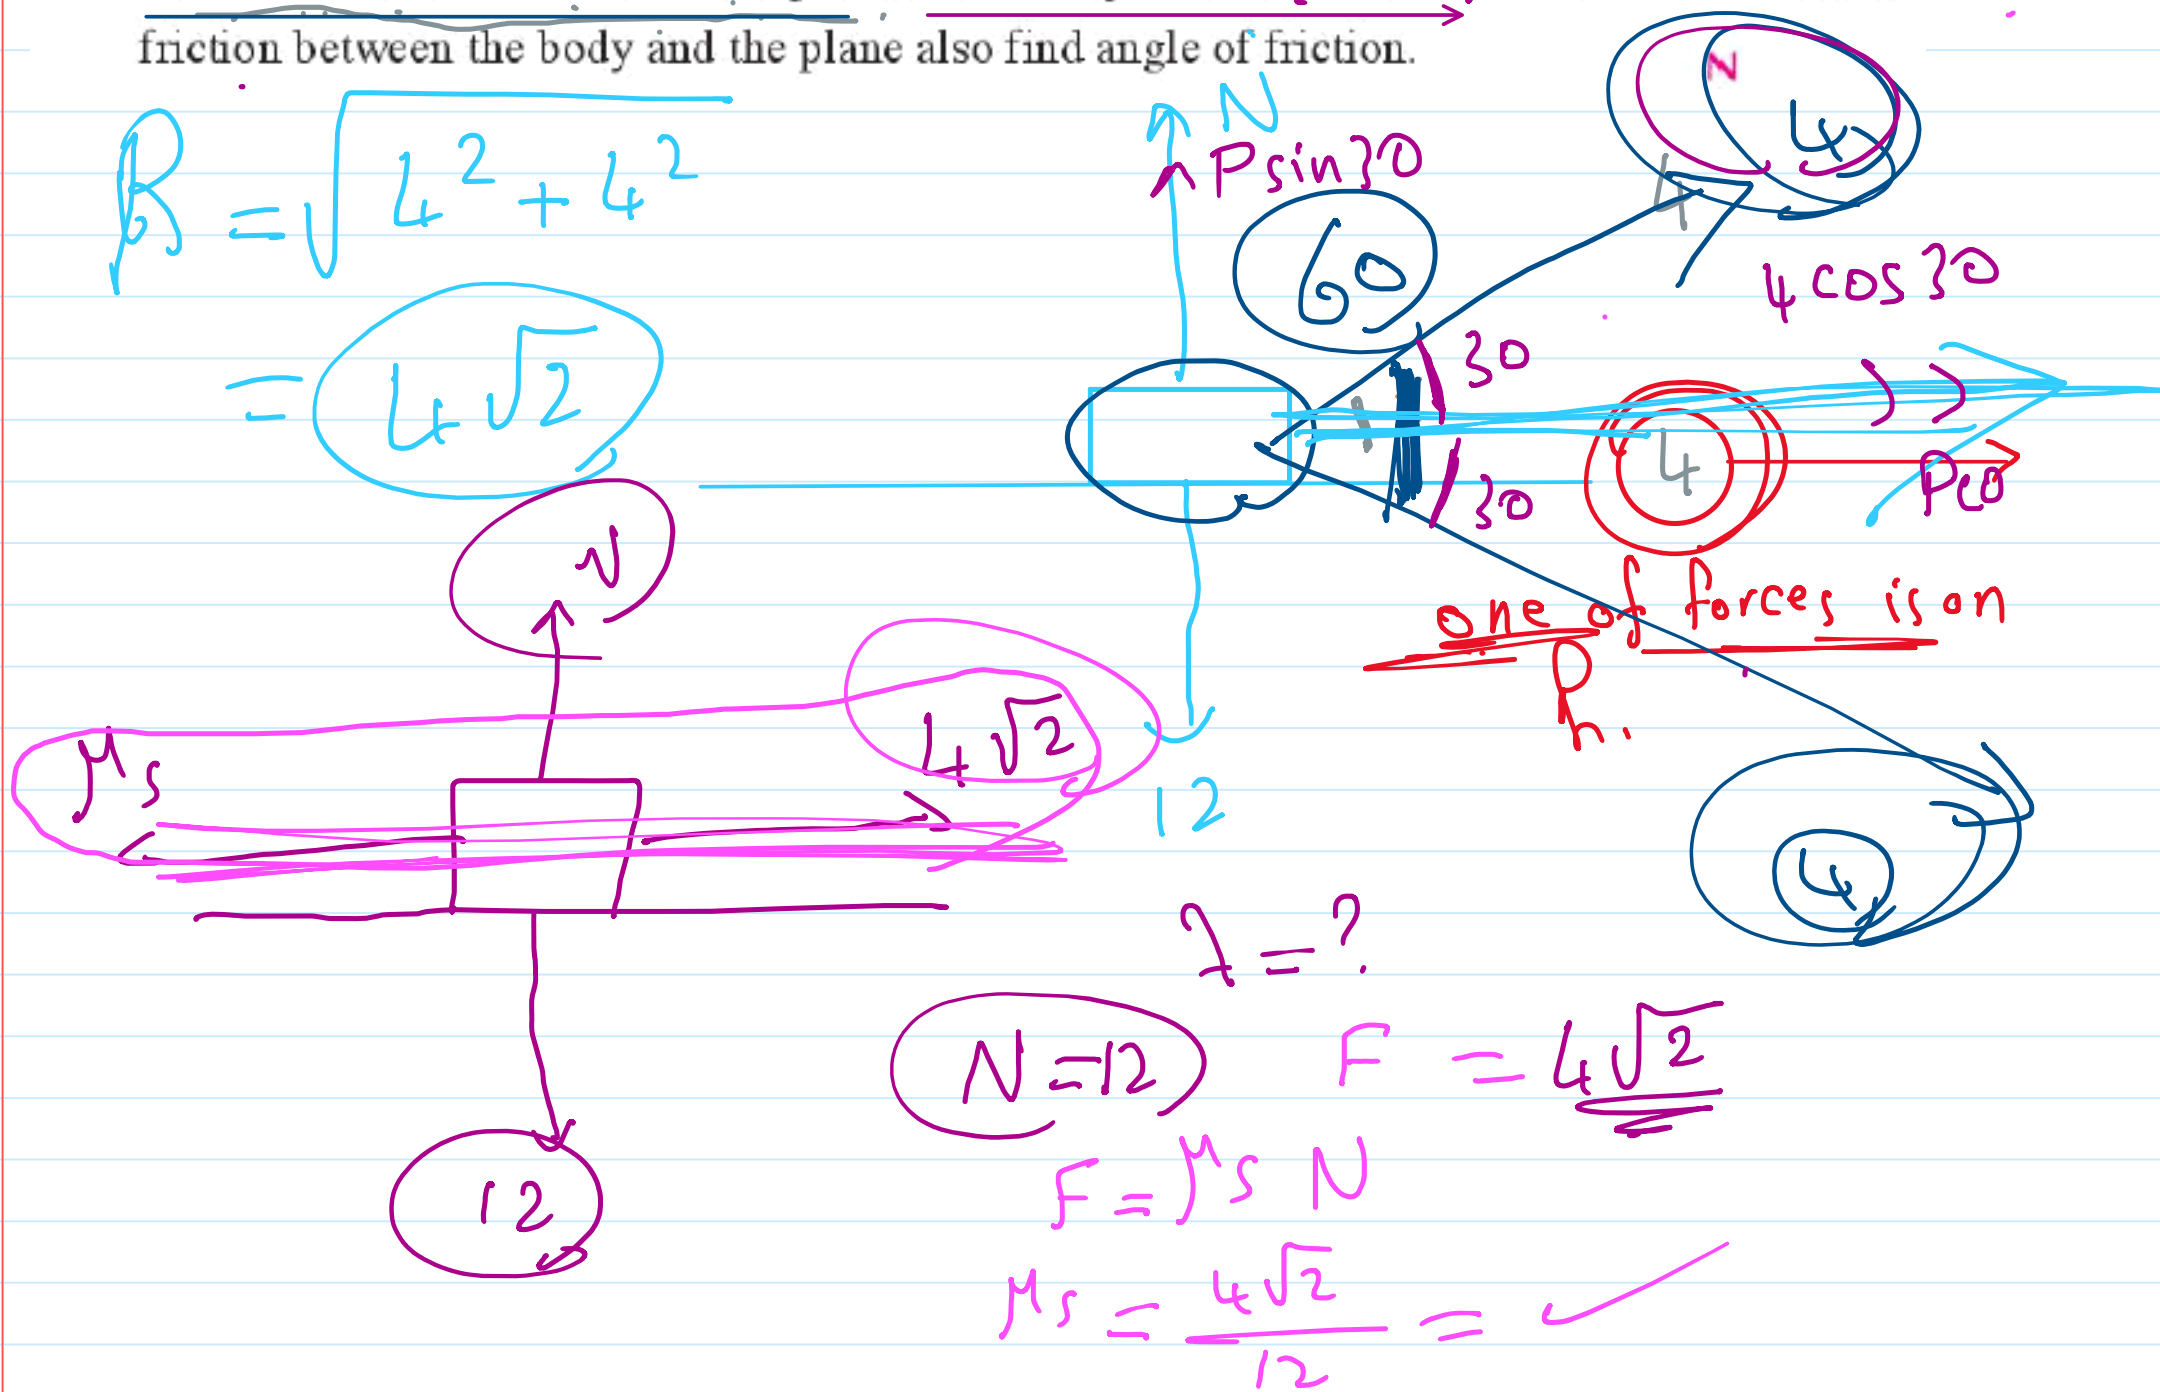 friction between the body and the plane also find angle of friction.
R = √4² + 4²
= 4√2
N
P sin 30
60
N
4
4
4 cos 30
30
30
4
one of forces is on
R.
N
μs
4√2
12
4
λ = ?
N = 12
F = 4√2
12
F = μs N
μs = 4√2 / 12 =